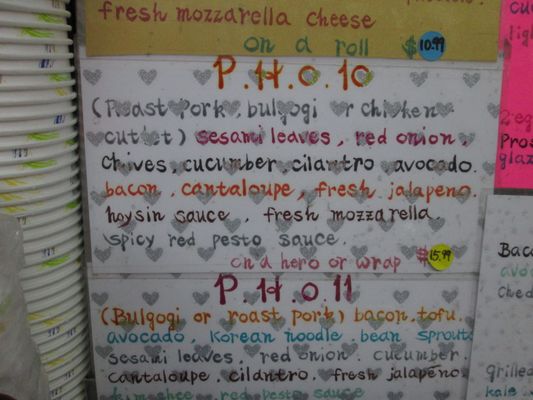 fresh mozzarella cheese
on a roll $10.99
P.H.O.10
(Roast Pork, bulgogi or chicken
cutlet) sesami leaves, red onion,
chives, cucumber, cilantro, avocado.
bacon, cantaloupe, fresh jalapeno.
hoysin sauce, fresh mozzarella.
spicy red pesto sauce.
on a hero or wrap $15.99
P.H.O.11
(Bulgogi or roast pork) bacon, tofu.
avocado, korean noodle, bean sprouts
sesami leaves, red onion, cucumber.
cantaloupe, cilantro, fresh jalapeno.
red pesto sauce
Baco
avo
Ched
grilled
kale